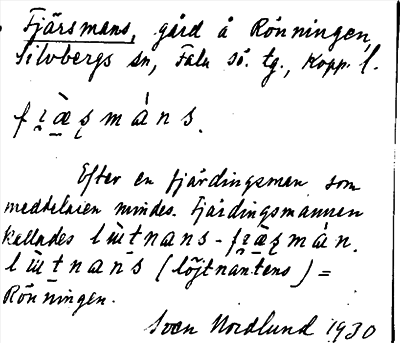 Fjärsmans, gård å Rönningen,
Silvbergs sn, Falu sö. tg., Kopp. l.
fi̯æ̀ʂmàns.
Efter en fjärdingsman som
meddelaren mindes. Fjärdingsmannen
kallades lǜtnans-fi̯æ̀ʂmàn.
lǜtnans (löjtnantens) =
Rönningen.
Sven Nordlund 1930